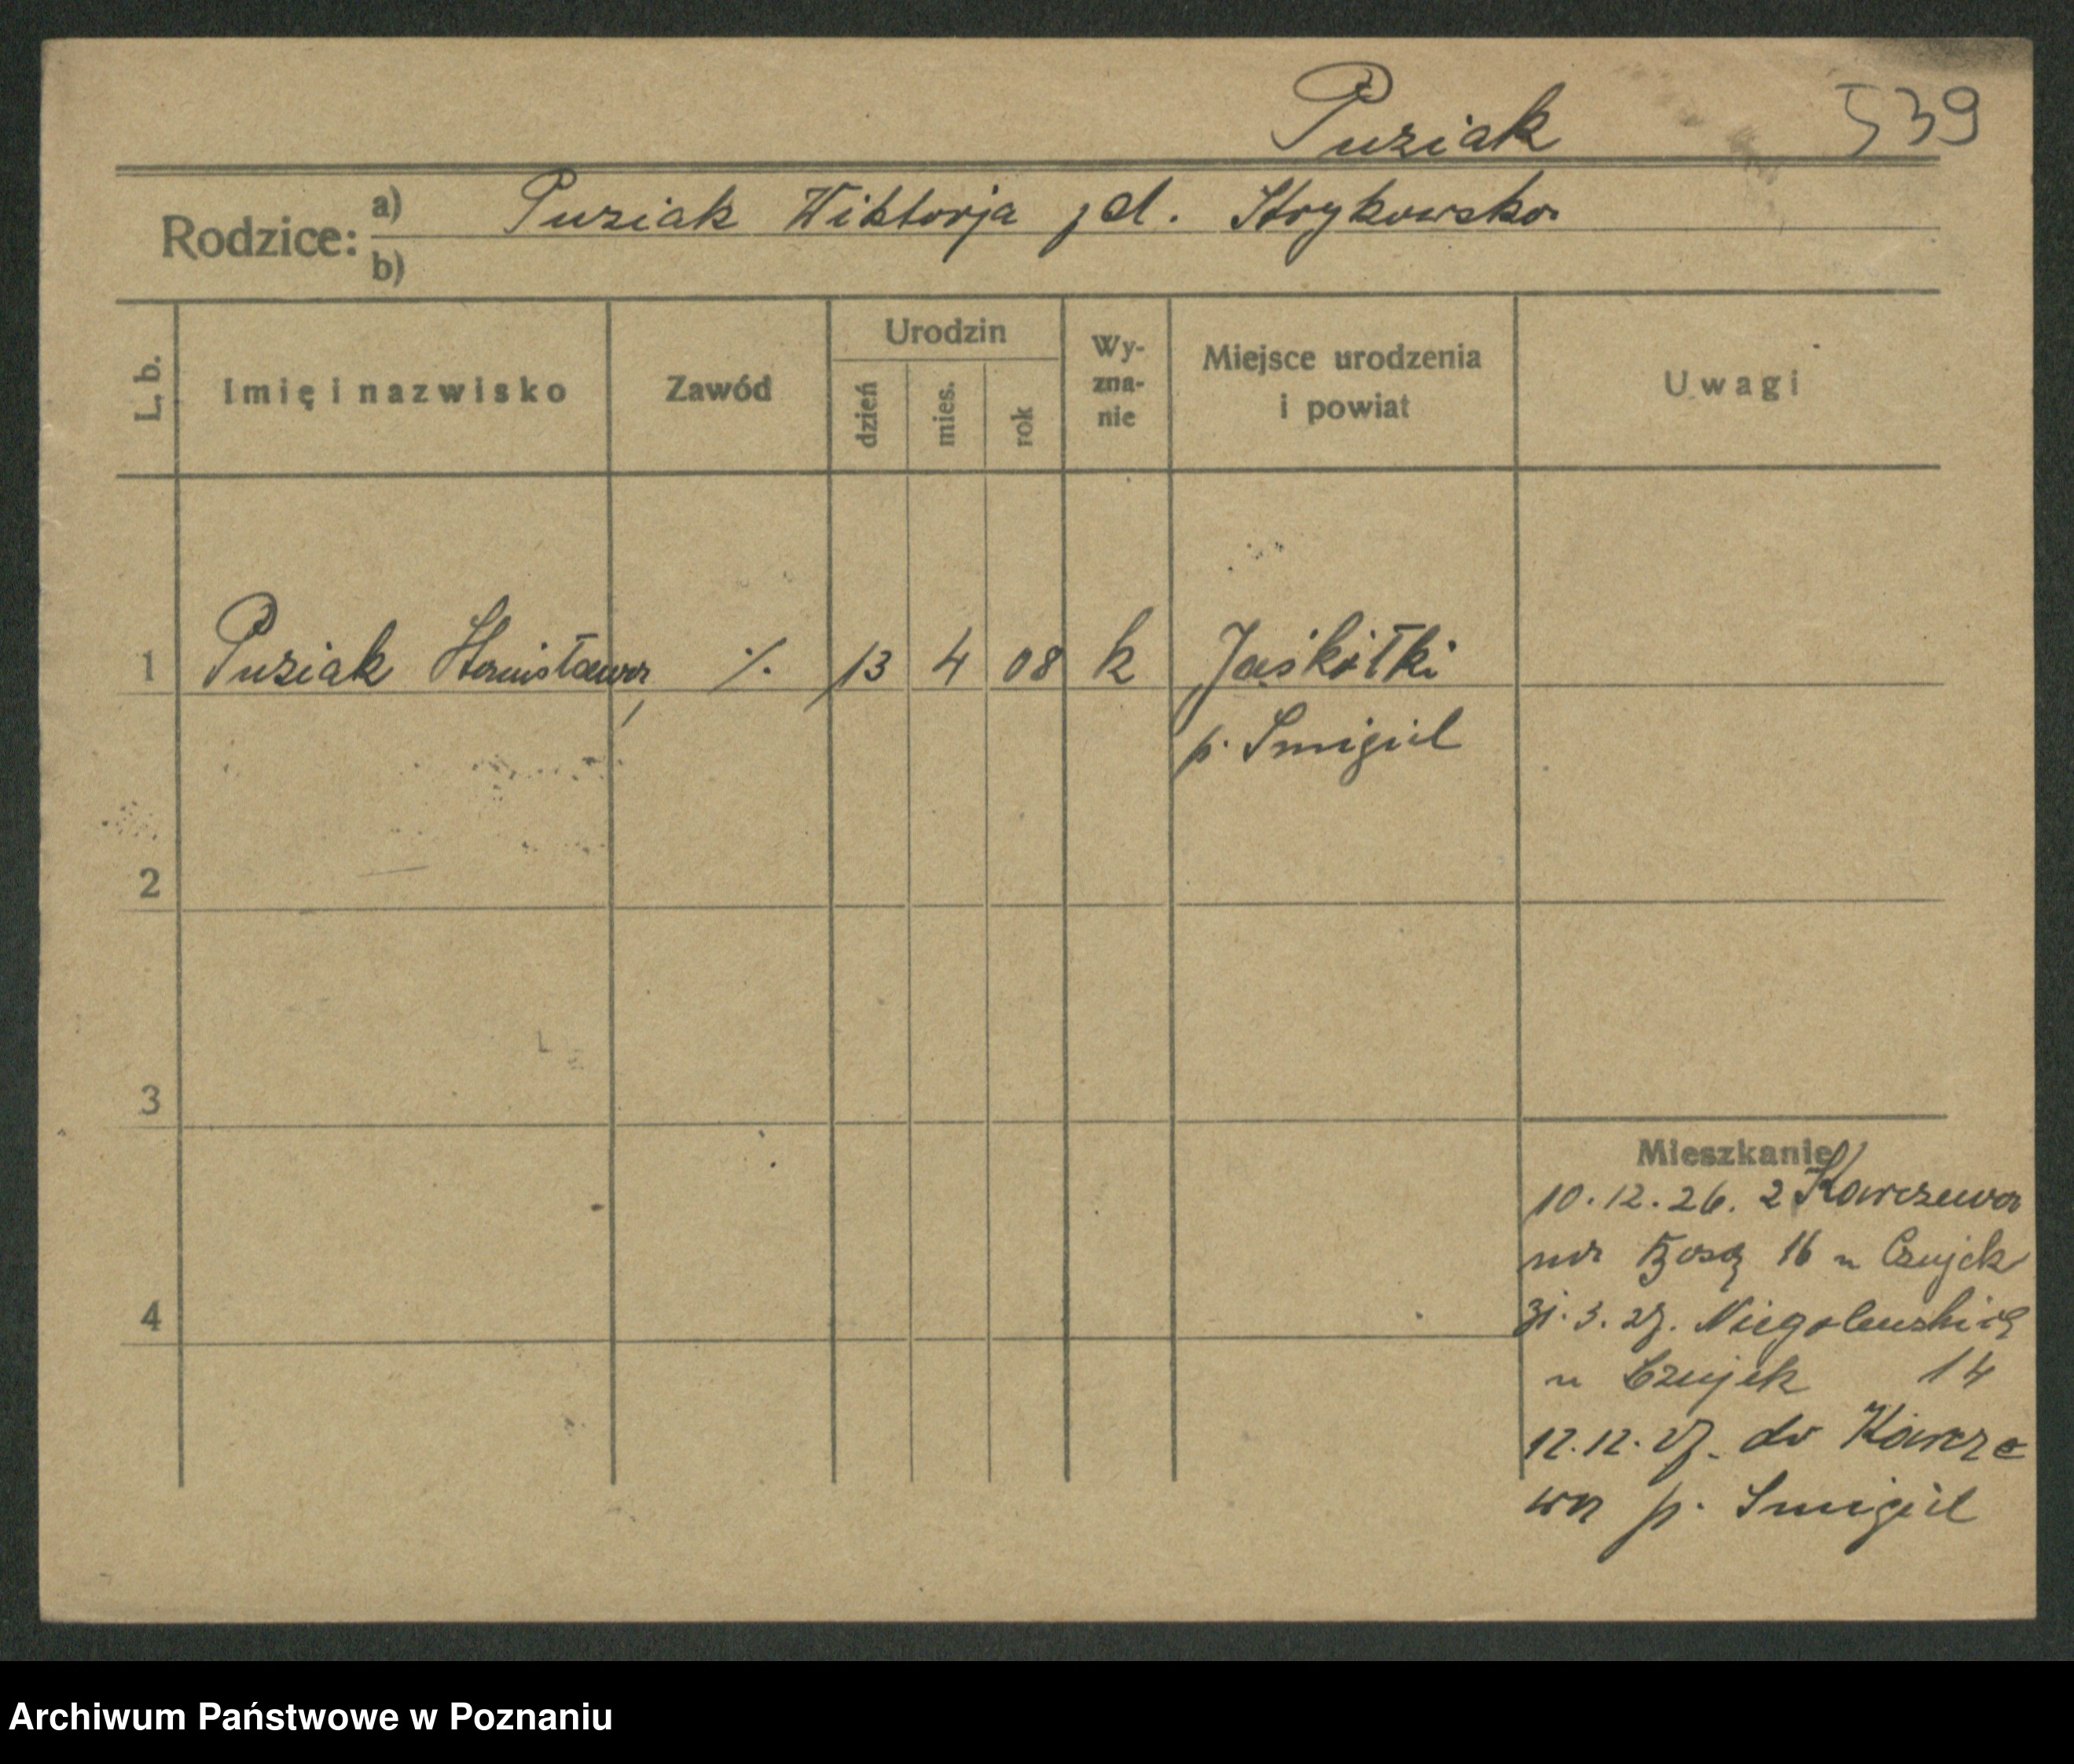 Puziak 539
Rodzice: a) Puziak Wiktorja pd. Strykowska
b)
L. b. Imię i nazwisko Zawód Urodzin Wy-zna-nie Miejsce urodzenia i powiat Uwagi
dzień mies. rok
1 Puziak Stanisława ./. 13 4 08 k Jaskółki
p. Smigiel
2
3
4
Mieszkanie
10.12.26. z Karczewa
16 u Czujek
31.3.27. Niegolewskich
u Czujek 14
12.12.27. do Karcze
wa p. Smigiel
Archiwum Państwowe w Poznaniu